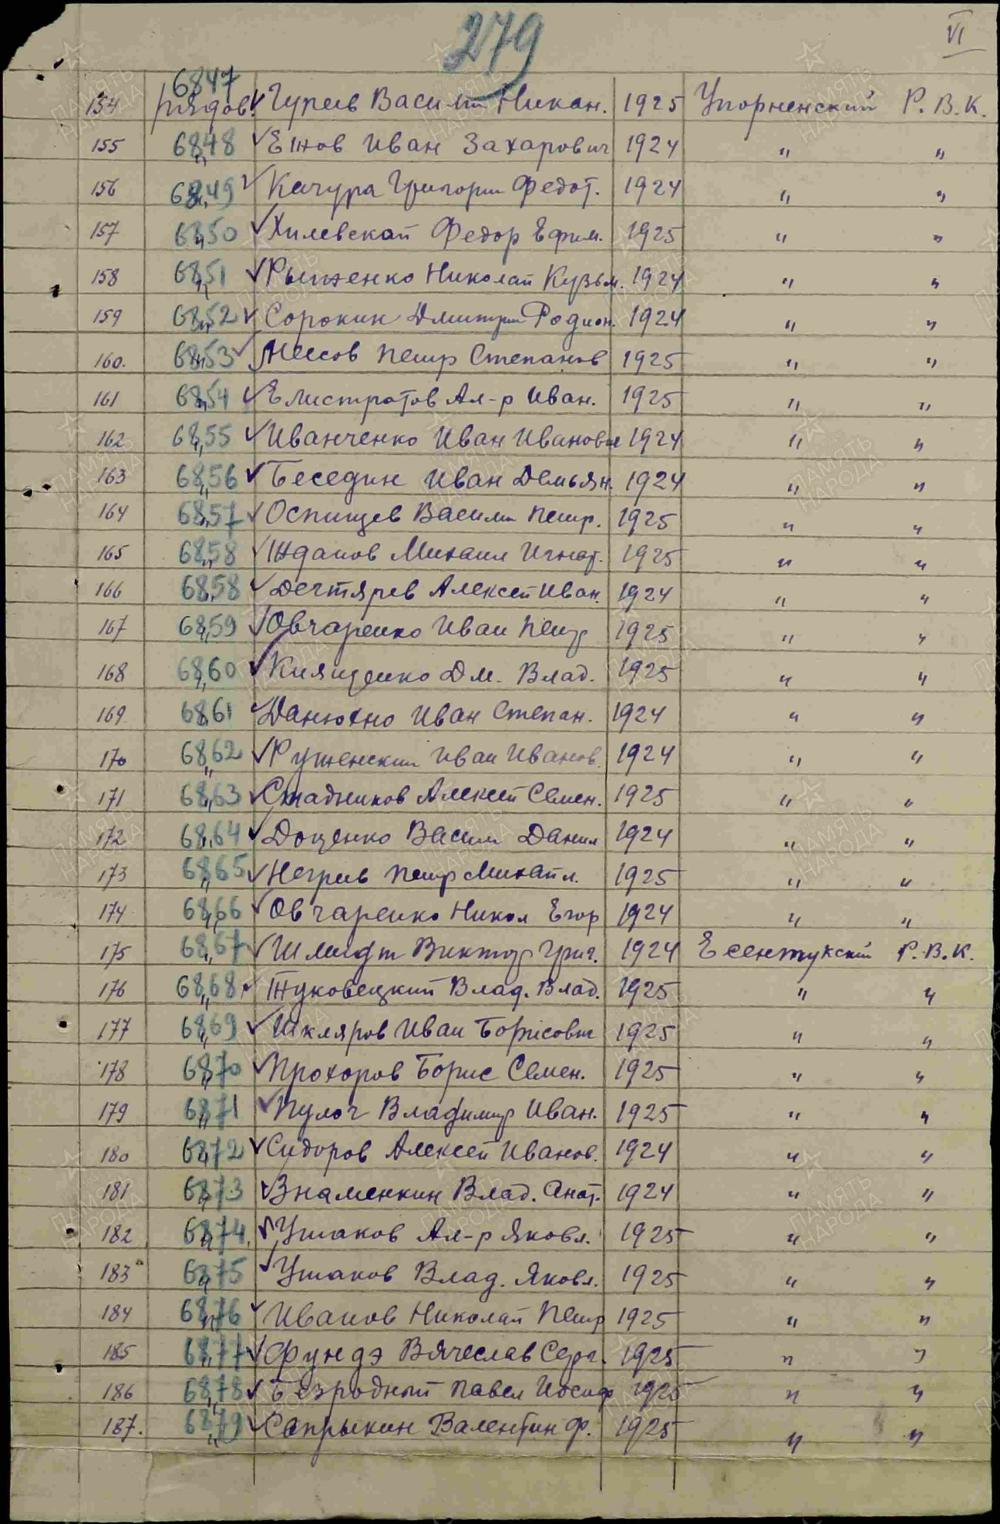 279
VI
154 6847 рядов. Гуреев Василий Никан. 1925 Упорненский Р.В.К.
155 6848 " Ежов Иван Захарович 1924 " "
156 6849 " Качура Григорий Федот. 1924 " "
157 6850 " Хилевской Федор Ефим. 1925 " "
158 6851 " Рыженко Николай Кузьм. 1924 " "
159 6852 " Сорокин Дмитрий Родион. 1924 " "
160. 6853 " Петр Степанов 1925 " "
161 6854 " Елистратов Ал-р Иван. 1925 " "
162 6855 " Иванченко Иван Иванович 1924 " "
163 6856 " Беседин Иван Демьян. 1924 " "
164 6857 " Оспищев Василий Петр. 1925 " "
165 6858 " Жданов Михаил Игнат. 1925 " "
166 6858 " Дегтярев Алексей Иван. 1924 " "
167 6859 " Овчаренко Иван Петр 1925 " "
168 6860 " Кнященко Дм. Влад. 1925 " "
169 6861 " Данюхно Иван Степан. 1924 " "
170 6862 " Руженский Иван Иванов. 1924 " "
171 6863 " Стадников Алексей Семен. 1925 " "
172 6864 " Доценко Васили Данил 1924 " "
173 6865 " Негреев Петр Михайл. 1925 " "
174 6866 " Овчаренко Никол Егор 1924 " "
175 6867 " Шмидт Виктор Григ. 1924 Есентукский Р.В.К.
176 6868 " Жуковецкий Влад. Влад. 1925 " "
177 6869 " Шкляров Иван Борисович 1925 " "
178 6870 " Прохоров Борис Семен. 1925 " "
179 6871 " Пулоч Владимир Иван. 1925 " "
180 6872 " Сидоров Алексей Иванов. 1924 " "
181 6873 " Знаменкин Влад. Анат. 1924 " "
182 6874 " Ушаков Ал-р Яковл. 1925 " "
183 6875 " Ушаков Влад. Яковл. 1925 " "
184 6876 " Иванов Николай Петр 1925 " "
185 6877 " Фундэ Вячеслав Серг. 1925 " "
186 6878 " Безродный Павел Иосиф 1925 " "
187. 6879 " Сапрыкин Валентин Ф. 1925 " "